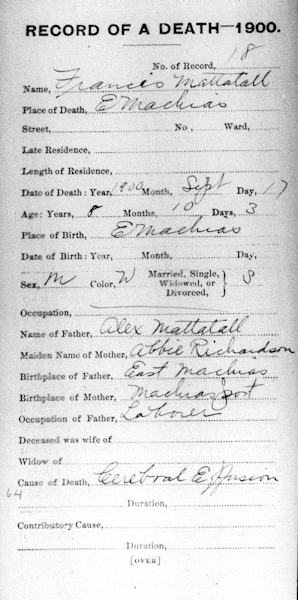 RECORD OF A DEATH—1900.
No. of Record, 18
Name, Francis Mattatall
Place of Death, E Machias
Street, No, Ward,
Late Residence,
Length of Residence,
Date of Death: Year, 1900 Month, Sept Day, 17
Age: Years, 8 Months, 10 Days, 3
Place of Birth, E Machias
Date of Birth: Year, Month, Day,
Sex, M Color, W Married, Single, Widowed, or Divorced, } S
Occupation,
Name of Father, Alex Mattatall
Maiden Name of Mother, Abbie Richardson
Birthplace of Father, East Machias
Birthplace of Mother, Machiasport
Occupation of Father, Laborer
Deceased was wife of
Widow of
Cause of Death, Cerebral Effusion
64
Duration,
Contributory Cause,
Duration,
[OVER]